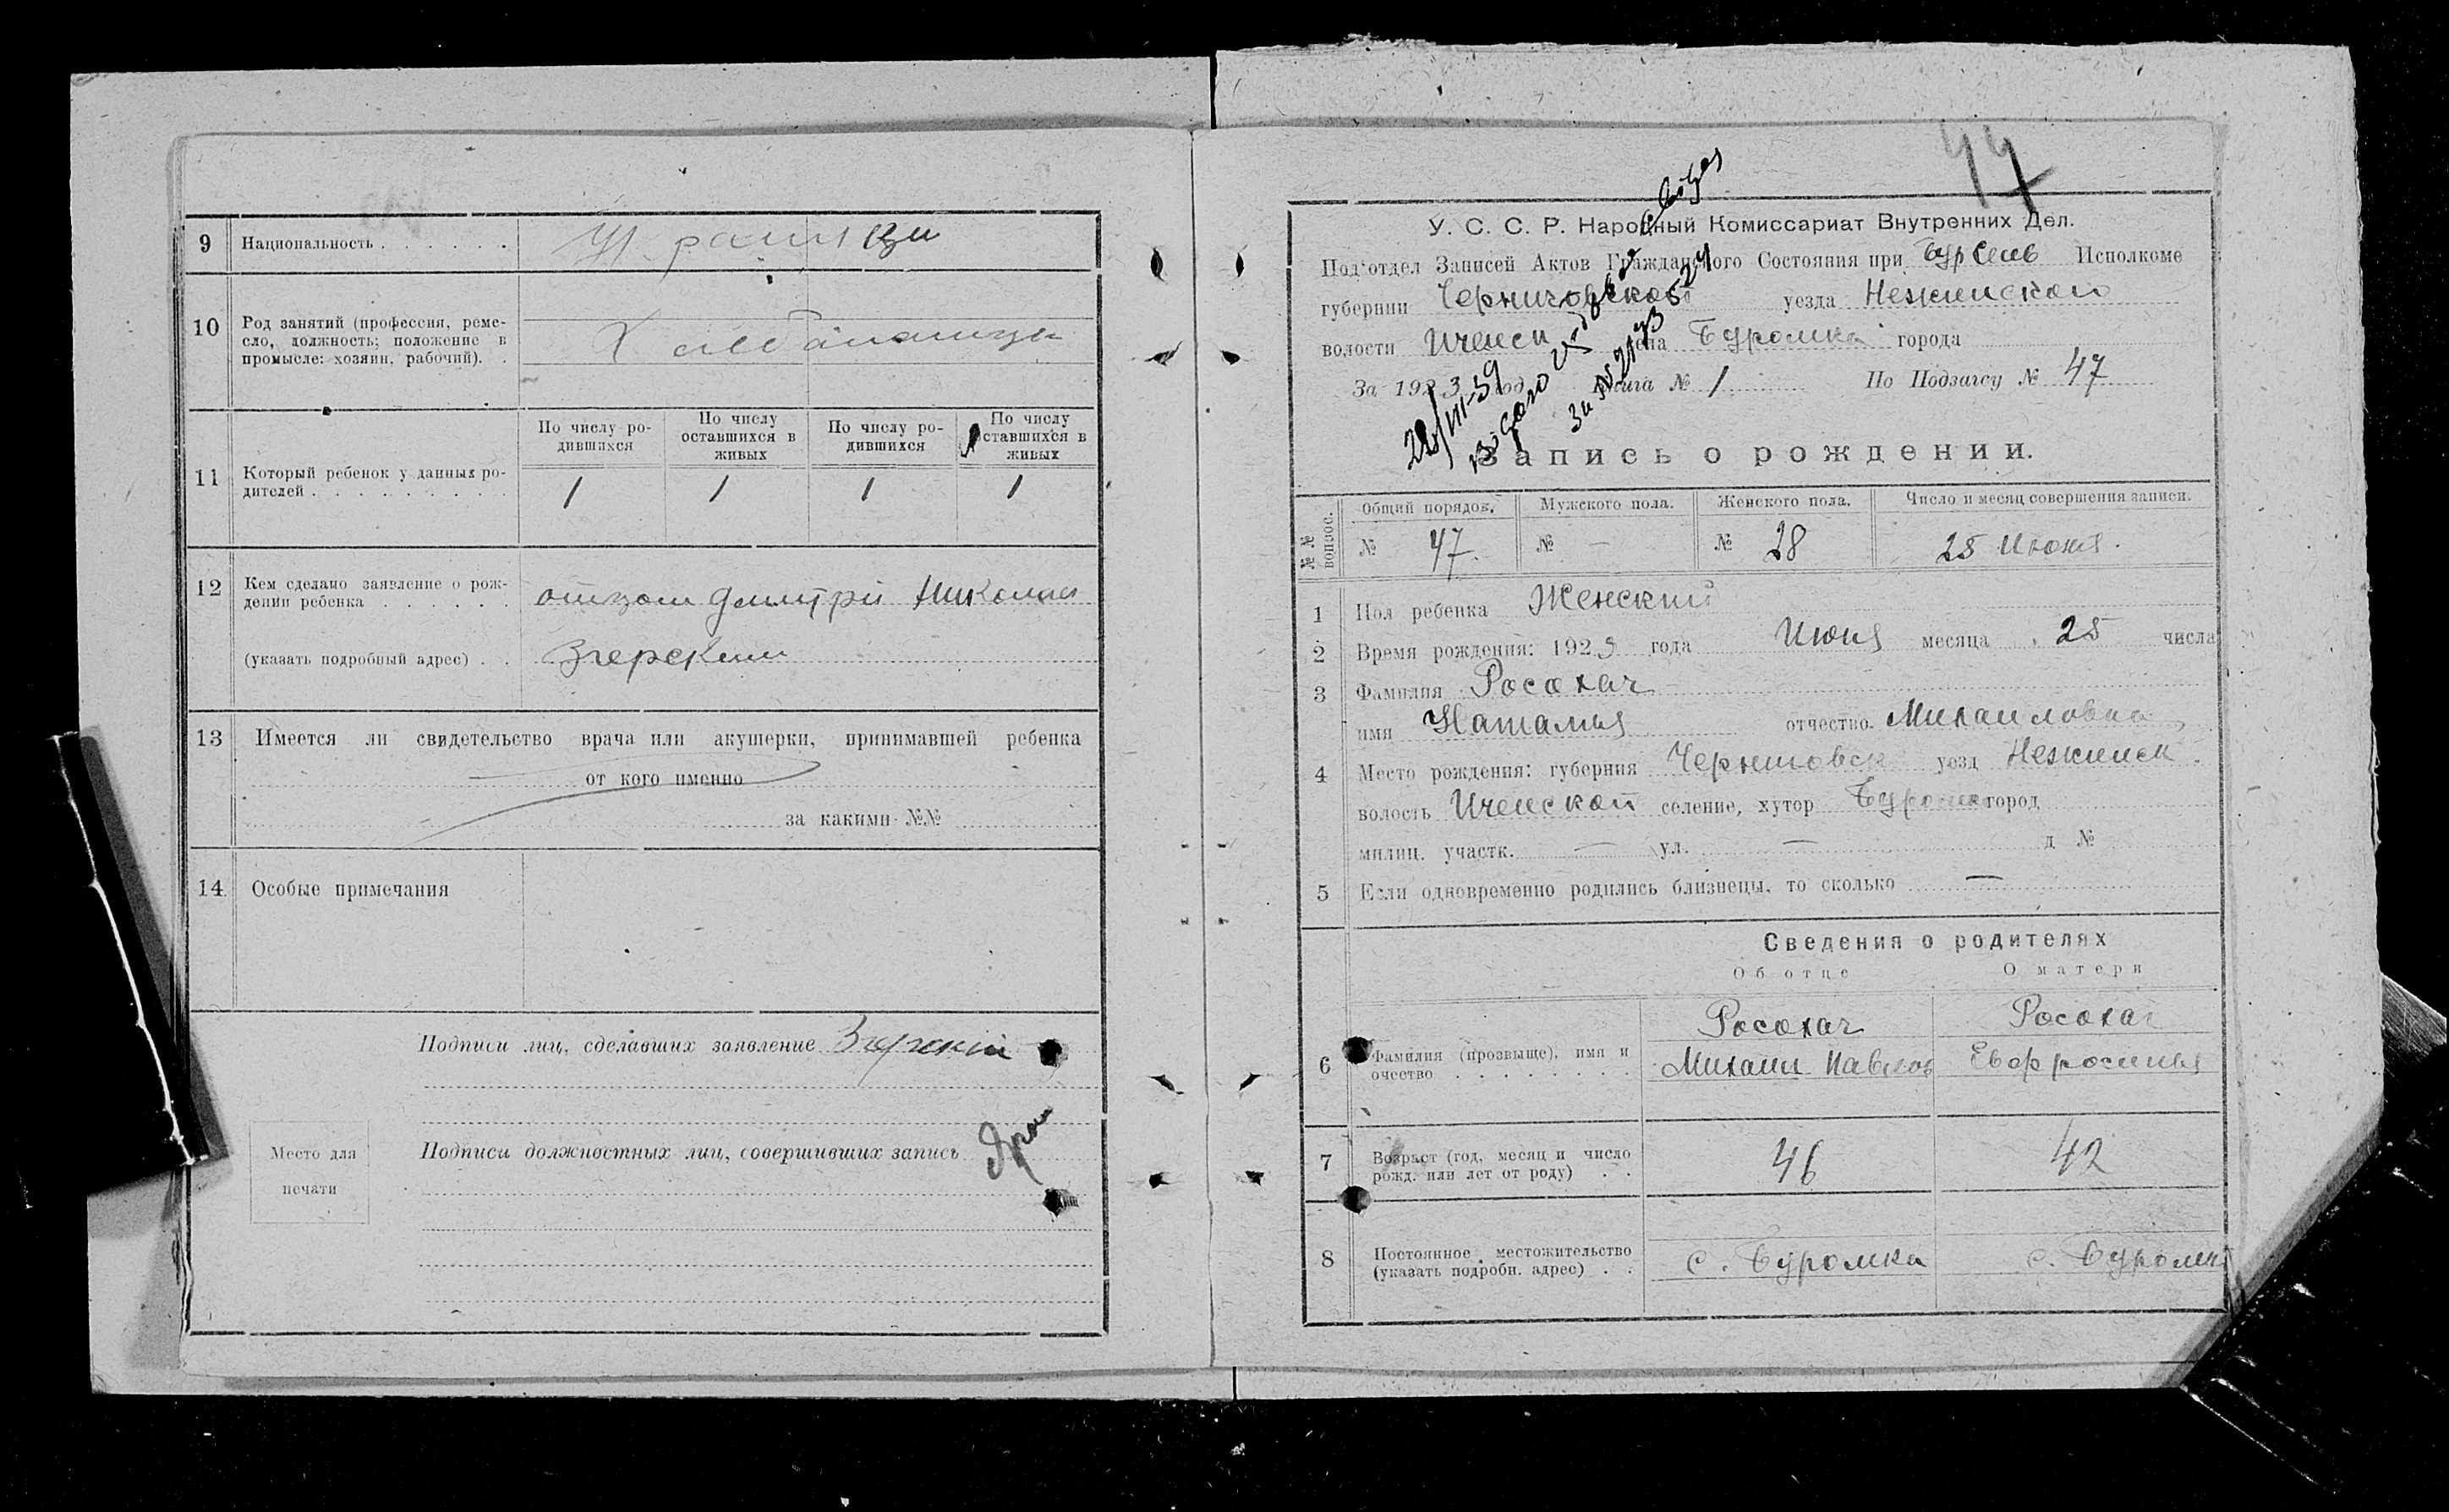 9 Национальность . . . . . . . Украинци
10 Род занятий (профессия, реме-
сло, должность; положение в
промысле: хозяин, рабочий). . Хлебапашци
По числу ро-
дившихся По числу
оставшихся в
живых По числу ро-
дившихся По числу
оставшихся в
живых
11 Который ребенок у данных ро-
дителей . . . . . . . . . . 1 1 1 1
12 Кем сделано заявление о рож-
дении ребенка . . . . . . отцом Дмитрий Николая
(указать подробный адрес) . . Згерским
13 Имеется ли свидетельство врача или акушерки, принимавшей ребенка
от кого именно
за какими №№
14 Особые примечания
Подписи лиц, сделавших заявление Згерский
Место для
печати
Подписи должностных лиц, совершивших запись
47
У. С. С. Р. Народный Комиссариат Внутренних Дел.
Под'отдел Записей Актов Гражданского Состояния при БурСельв Исполкоме
губернии Черниговской уезда Нежинского
волости Иченск села Буромка города
За 1923 год Книга № 1 По Подзагсу № 47
22/VIII-39
Запись о рождении.
№ № вопрос. Общий порядок. Мужского пола. Женского пола. Число и месяц совершения записи.
№ 47. № — № 28 25 Июня.
1 Пол ребенка Женский
2 Время рождения: 1923 года Июня месяца 25 числа
3 Фамилия Росохач
имя Наталия отчество Михаиловна
4 Место рождения: губерния Черниговск уезд Нежинск.
волость Иченской селение, хутор Буромка город
милиц. участк. — ул. — д №
5 Если одновременно родились близнецы, то сколько —
Сведения о родителях
Об отце О матери
6 Фамилия (прозвыще), имя и
очество . . . . . . . . Росохач
Михаил Павлов Росохач
Евфросиния
7 Возраст (год, месяц и число
рожд. или лет от роду) . . 46 42
8 Постоянное местожительство
(указать подробн. адрес) . . с. Буромка с. Буромк